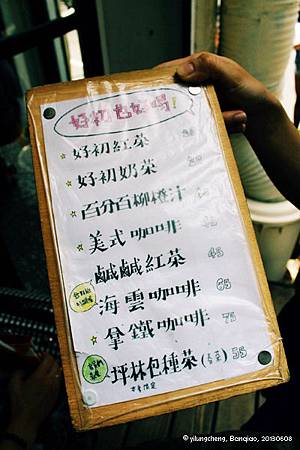 好初也好喝!
好初紅茶
好初奶茶
百分百柳橙汁
美式咖啡
鹹鹹紅茶 45
海雲咖啡 65
拿鐵咖啡 75
坪林包種茶(春茶) 35
© yilungcheng, Banqiao, 20130608